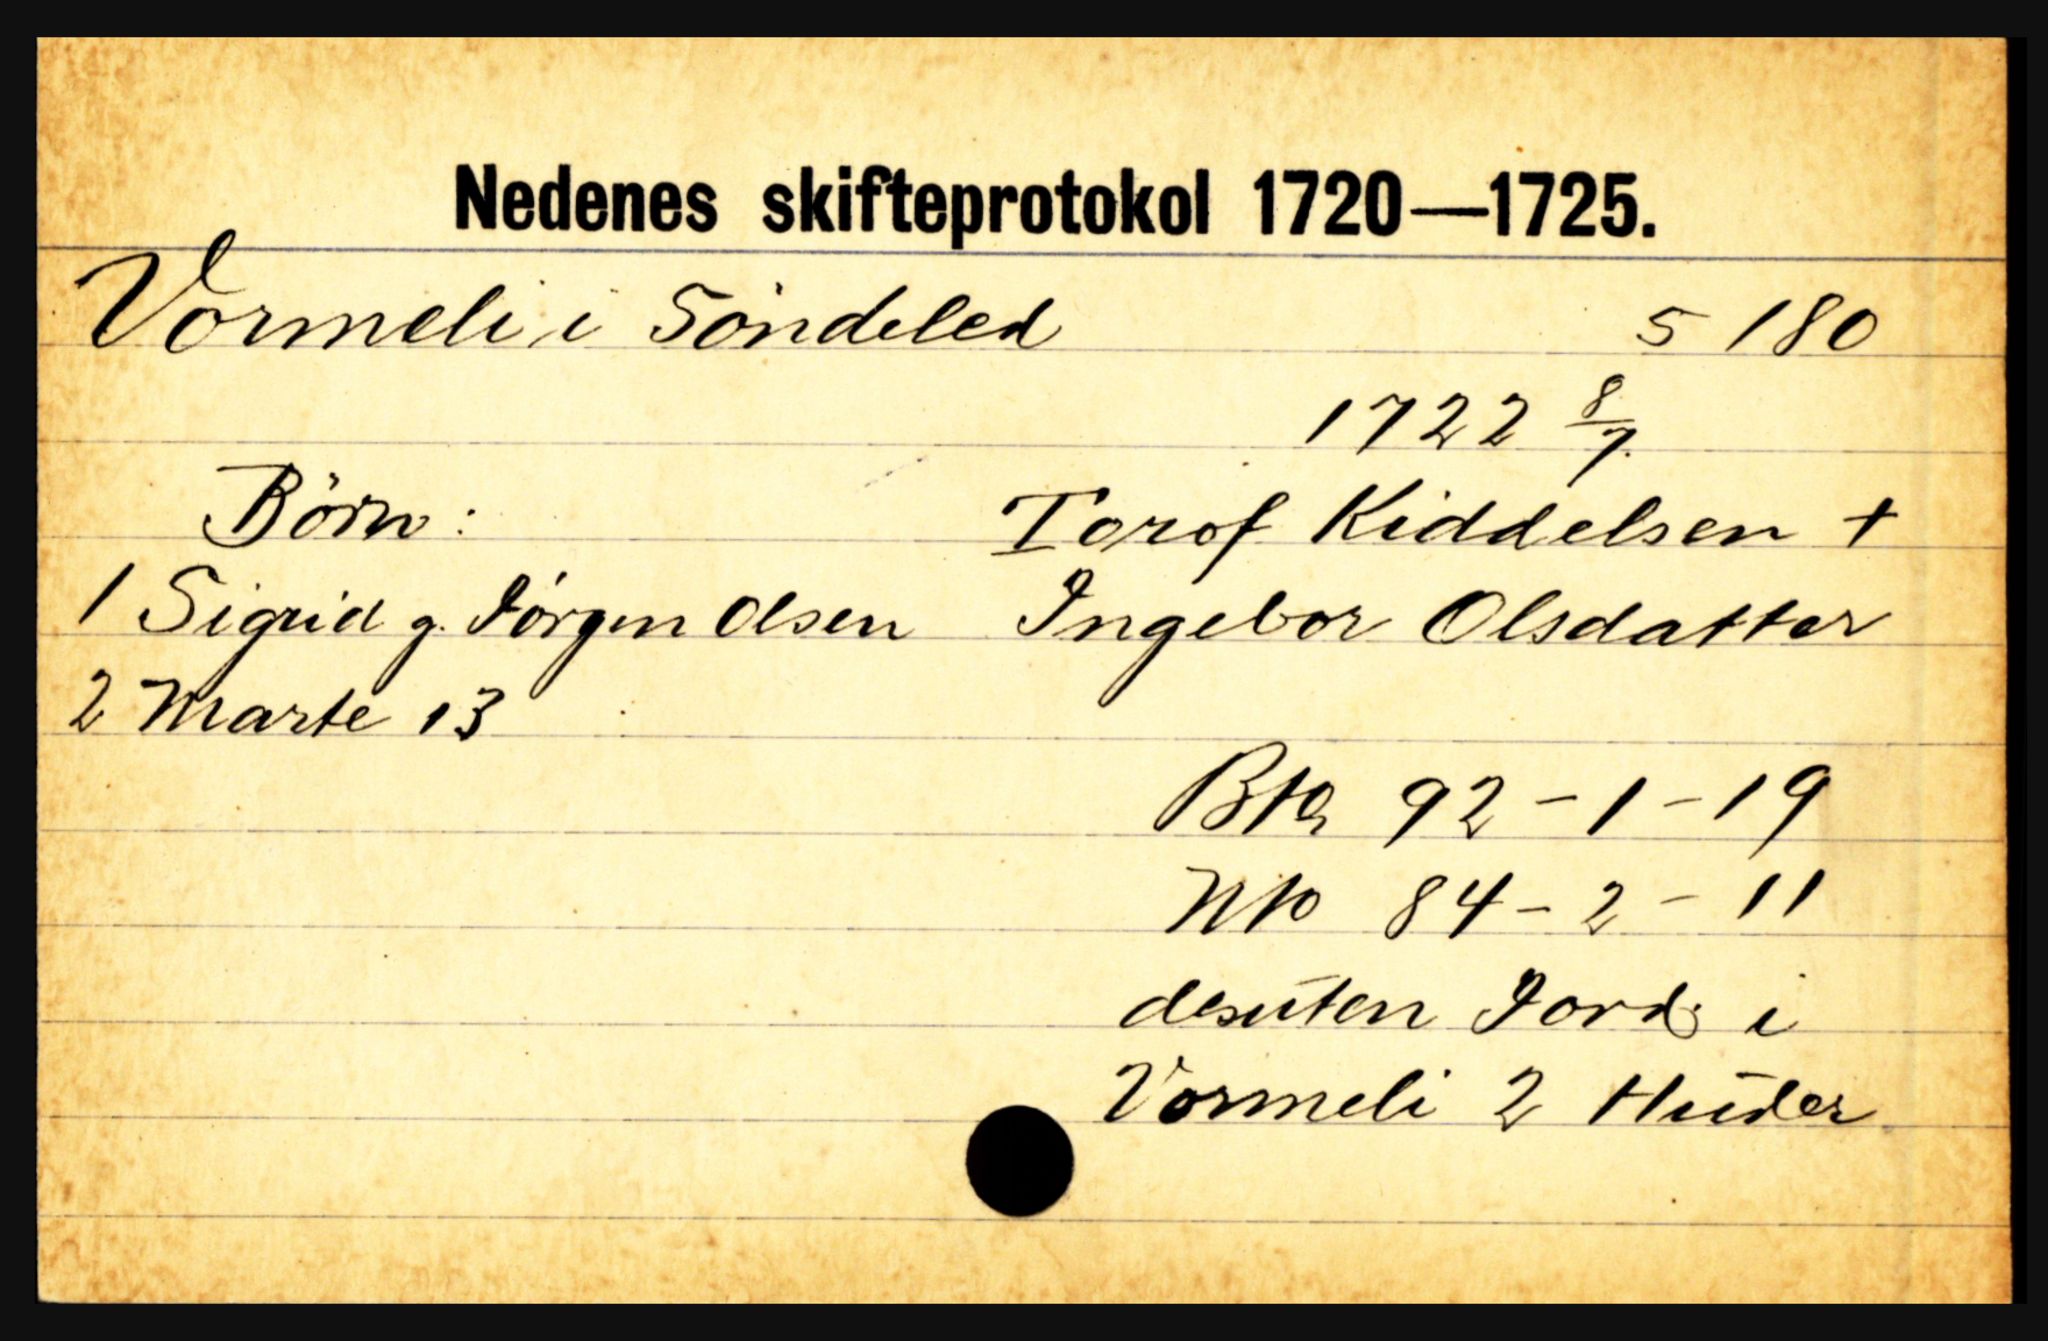 Nedenes skifteprotokol 1720—1725.
Vormeli i Söndeled 5 180
1722 8/7.
Börn: Torof Kiddelsen +
1 Sigrid g. Jörgen Olsen Ingebor Olsdatter
2 Marte 13
Bto 92 - 1 - 19
Nto 84 - 2 - 11
desuten Jord i
Vormeli 2 Huder